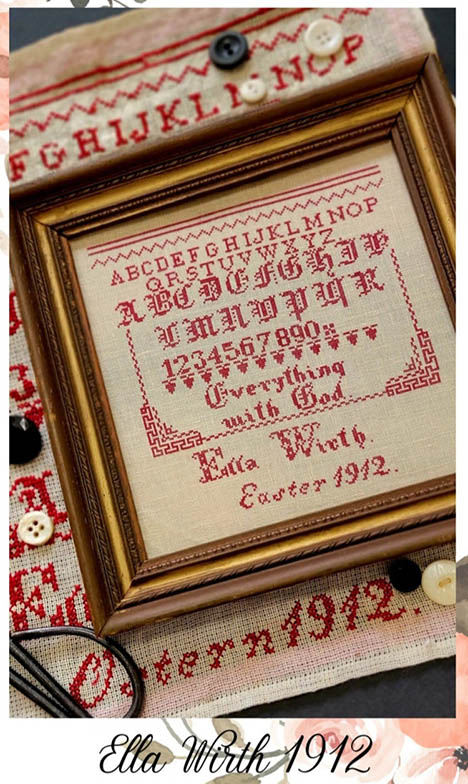 FGHIJKLMNOP
ABCDEFGHIJKLMNOP
QRSTUVWXYZ
ABCDEFGHIK
LMNOPQR
1234567890
Everything
with God
Ella Wirth.
Easter 1912.
Ostern 1912.
Ella Wirth 1912